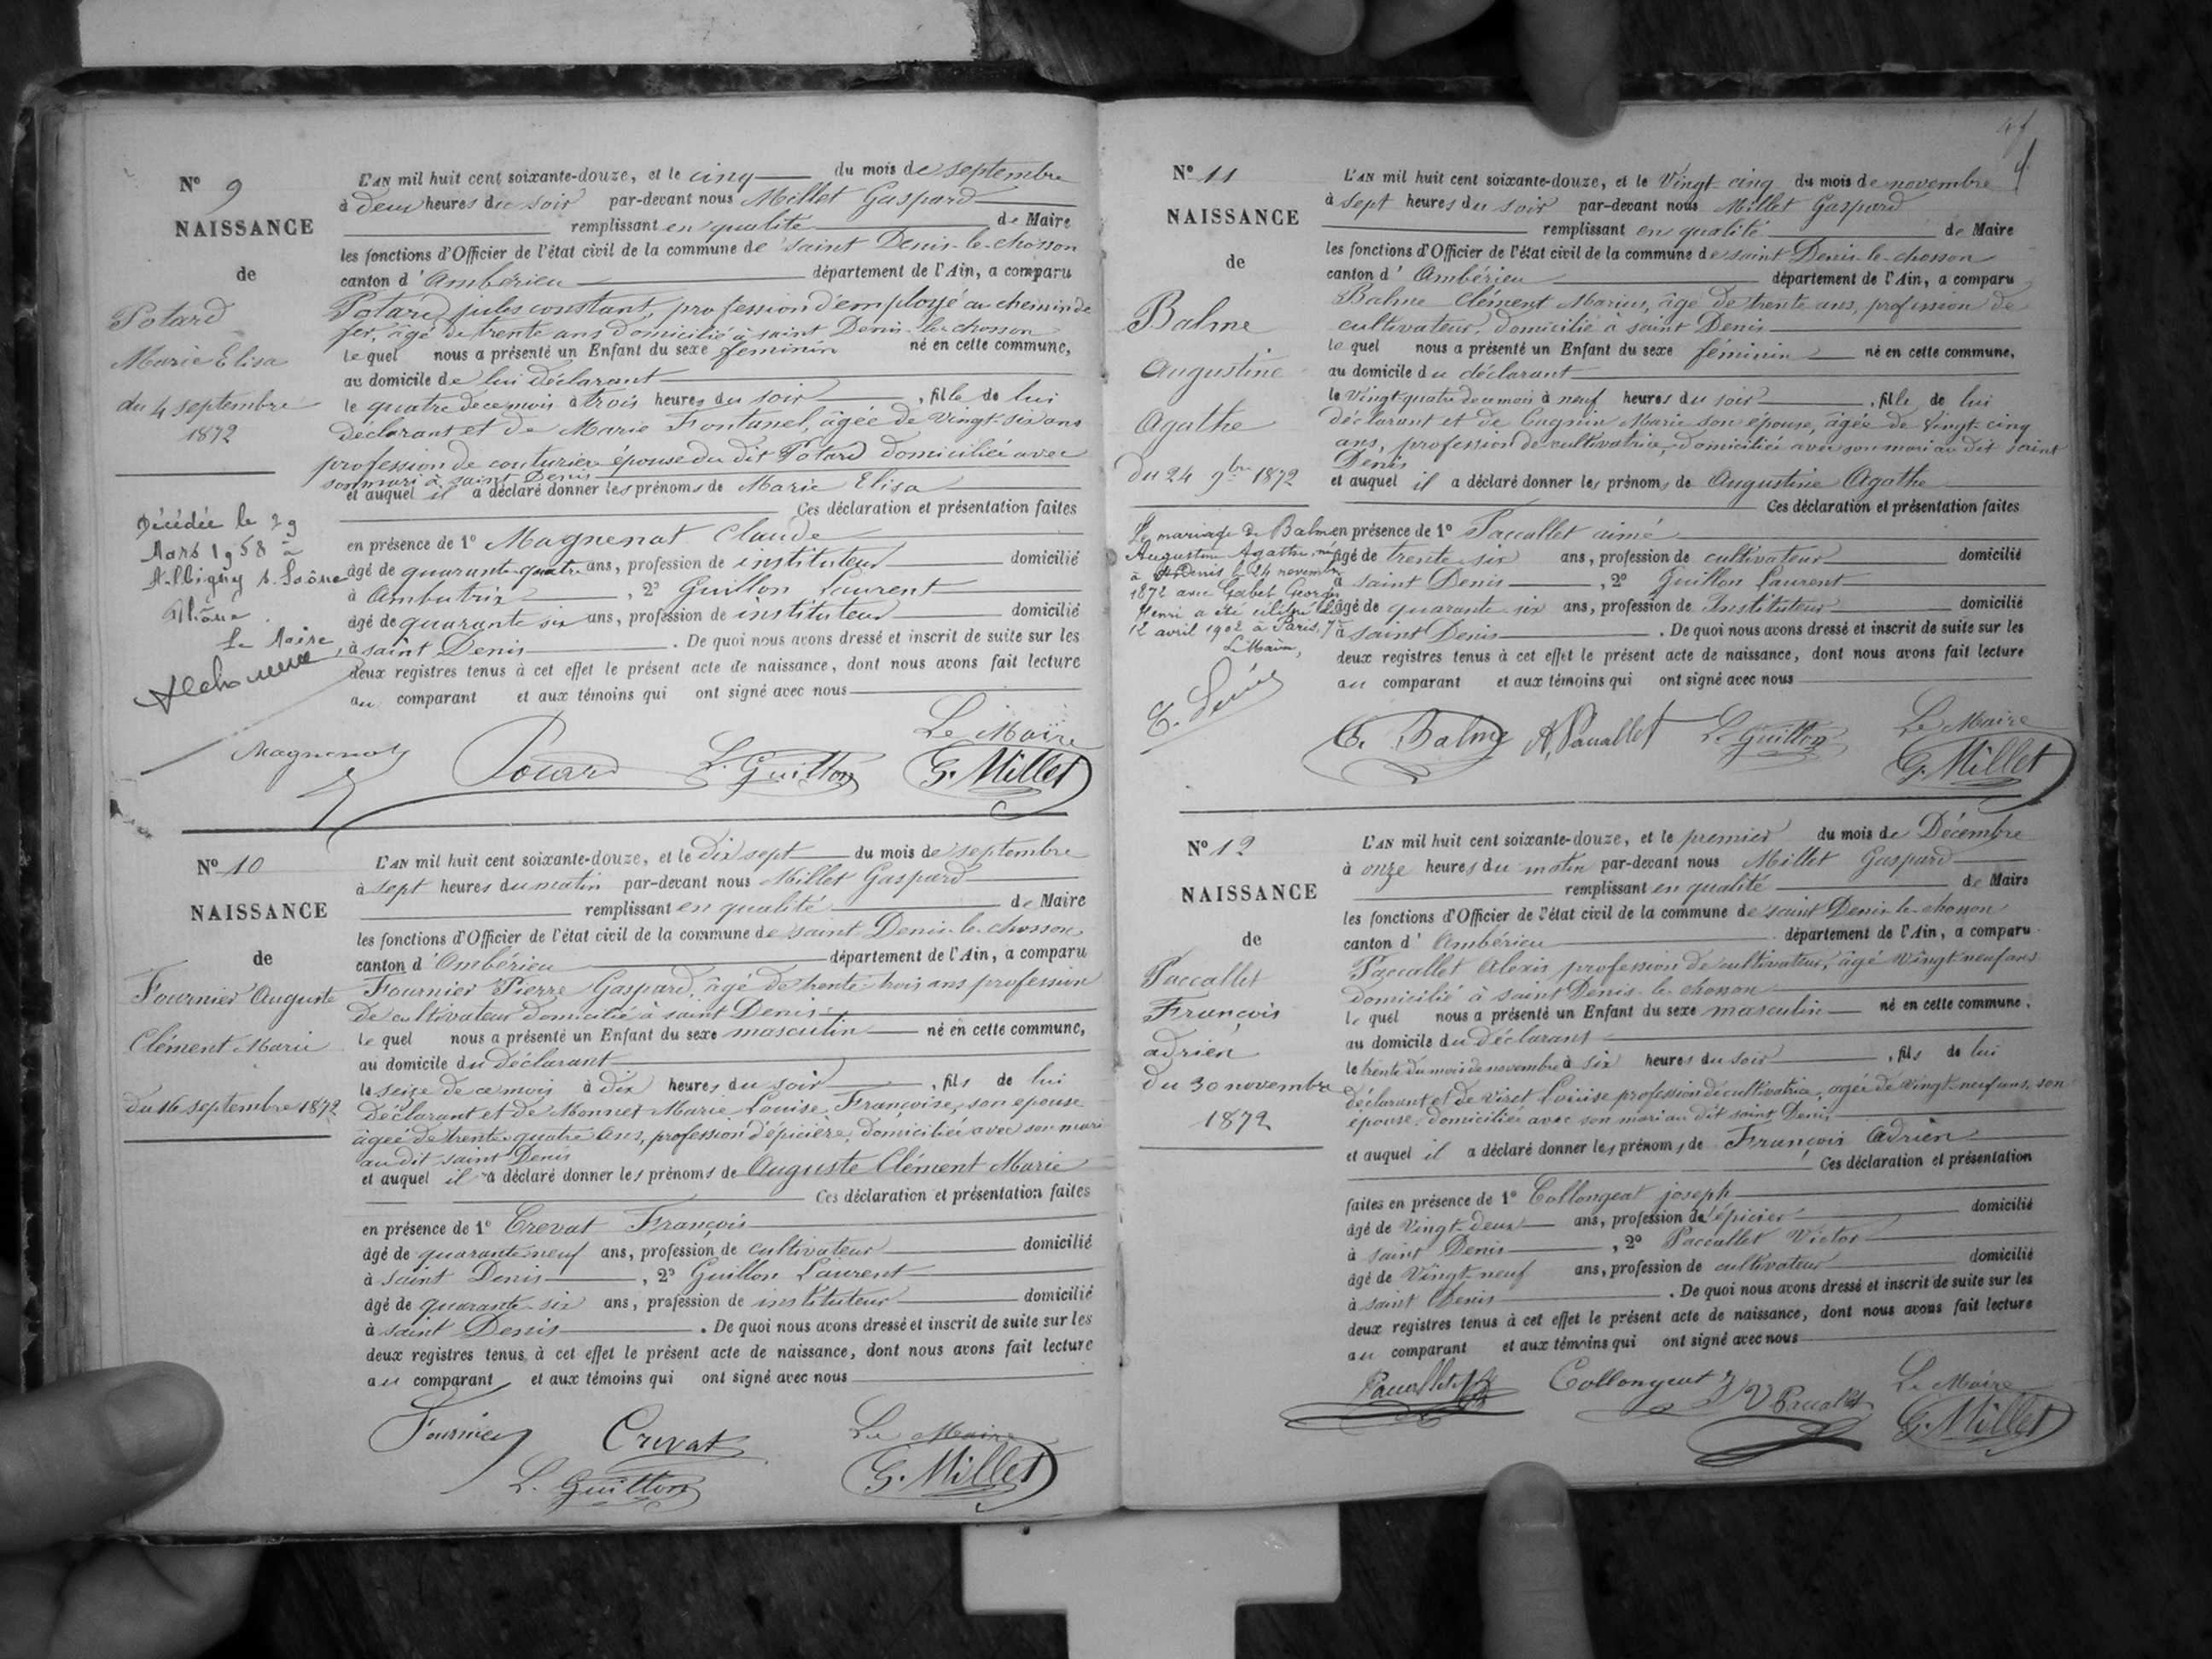 N° 9
NAISSANCE
de
Potard
Marie Elisa
du 4 septembre
1872
Décédée le 29
Mars 1958 à
Albigny s. Saône
Rhône
Le Maire
L'AN mil huit cent soixante-douze, et le cinq du mois de septembre
à deux heures du soir par-devant nous Millet Gaspard
remplissant en qualité de Maire
les fonctions d'Officier de l'état civil de la commune de saint Denis-le-chosson
canton d'Ambérieu département de l'Ain, a comparu
Potard jules constant, profession d'employé au chemin de
fer, âgé de trente ans domicilié à saint Denis-le-chosson
le quel nous a présenté un Enfant du sexe féminin né en cette commune,
au domicile de lui déclarant
le quatre de ce mois à trois heures du soir, fille de lui
déclarant et de Marie Fontanel, âgée de vingt-six ans
profession de couturière épouse du dit Potard domiciliée avec
son mari à saint Denis
et auquel il a déclaré donner les prénoms de Marie Elisa
Ces déclaration et présentation faites
en présence de 1° Magnenat Claude
âgé de quarante-quatre ans, profession de instituteur domicilié
à Ambutrix, 2° Guillon Laurent
âgé de quarante six ans, profession de instituteur domicilié
à saint Denis. De quoi nous avons dressé et inscrit de suite sur les
deux registres tenus à cet effet le présent acte de naissance, dont nous avons fait lecture
au comparant et aux témoins qui ont signé avec nous
Le Maire
Magnenat Potard L. Guillon G. Millet
N° 10
NAISSANCE
de
Fournier Auguste
Clément Marie
du 16 septembre 1872
L'AN mil huit cent soixante-douze, et le dix sept du mois de septembre
à sept heures du matin par-devant nous Millet Gaspard
remplissant en qualité de Maire
les fonctions d'Officier de l'état civil de la commune de saint Denis-le-chosson
canton d'Ambérieu département de l'Ain, a comparu
Fournier Pierre Gaspard, âgé de trente-trois ans profession
de cultivateur domicilié à saint Denis
le quel nous a présenté un Enfant du sexe masculin né en cette commune,
au domicile du déclarant
le seize de ce mois à dix heures du soir, fils de lui
déclarant et de Monnet Marie Louise Françoise, son épouse
âgée de trente quatre ans, profession d'épicière, domiciliée avec son mari
au dit saint Denis
et auquel il a déclaré donner les prénoms de Auguste Clément Marie
Ces déclaration et présentation faites
en présence de 1° Crevat François
âgé de quarante neuf ans, profession de cultivateur domicilié
à saint Denis, 2° Guillon Laurent
âgé de quarante six ans, profession de instituteur domicilié
à saint Denis. De quoi nous avons dressé et inscrit de suite sur les
deux registres tenus à cet effet le présent acte de naissance, dont nous avons fait lecture
au comparant et aux témoins qui ont signé avec nous
Fournier Crevat Le Maire
L. Guillon G. Millet
N° 11
NAISSANCE
de
Balme
Augustine
Agathe
du 24 9bre 1872
Le mariage de Balme
Augustine Agathe, née
à St Denis le 24 novembre
1872 avec Gabet Georges
Henri a été célébré le
12 avril 1902 à Paris, 7e
Le Maire,
L'AN mil huit cent soixante-douze, et le Vingt-cinq du mois de novembre
à sept heures du soir par-devant nous Millet Gaspard
remplissant en qualité de Maire
les fonctions d'Officier de l'état civil de la commune de saint Denis-le-chosson
canton d'Ambérieu département de l'Ain, a comparu
Balme Clément Marius, âgé de trente ans, profession de
cultivateur, domicilié à saint Denis
le quel nous a présenté un Enfant du sexe féminin né en cette commune,
au domicile du déclarant
le Vingt-quatre de ce mois à neuf heures du soir, fille de lui
déclarant et de Cagnin Marie son épouse, âgée de Vingt-cinq
ans, profession de cultivatrice, domiciliée avec son mari au dit saint
Denis
et auquel il a déclaré donner les prénoms de Augustine Agathe
Ces déclaration et présentation faites
en présence de 1° Paccallet aimé
âgé de trente six ans, profession de cultivateur domicilié
à saint Denis, 2° Guillon Laurent
âgé de quarante six ans, profession de Instituteur domicilié
à saint Denis. De quoi nous avons dressé et inscrit de suite sur les
deux registres tenus à cet effet le présent acte de naissance, dont nous avons fait lecture
au comparant et aux témoins qui ont signé avec nous
Le Maire
C. Balme A. Paccallet L. Guillon G. Millet
N° 12
NAISSANCE
de
Paccallet
François
adrien
du 30 novembre
1872
L'AN mil huit cent soixante-douze, et le premier du mois de Décembre
à onze heures du matin par-devant nous Millet Gaspard
remplissant en qualité de Maire
les fonctions d'Officier de l'état civil de la commune de saint Denis-le-chosson
canton d'Ambérieu département de l'Ain, a comparu
Paccallet Alexis profession de cultivateur, âgé vingt neuf ans
domicilié à saint Denis-le-chosson
le quel nous a présenté un Enfant du sexe masculin né en cette commune,
au domicile du déclarant
le trente du mois de novembre à six heures du soir, fils de lui
déclarant et de Viret Louise profession de cultivatrice, agée de vingt-neuf ans, son
épouse, domiciliée avec son mari au dit saint Denis
et auquel il a déclaré donner les prénoms de François Adrien
Ces déclaration et présentation
faites en présence de 1° Collongeat joseph
âgé de Vingt-deux ans, profession d'épicier domicilié
à saint Denis, 2° Paccallet Victor
âgé de Vingt-neuf ans, profession de cultivateur domicilié
à saint Denis. De quoi nous avons dressé et inscrit de suite sur les
deux registres tenus à cet effet le présent acte de naissance, dont nous avons fait lecture
au comparant et aux témoins qui ont signé avec nous
Paccallet Collongeat J V Paccallet Le Maire
G. Millet